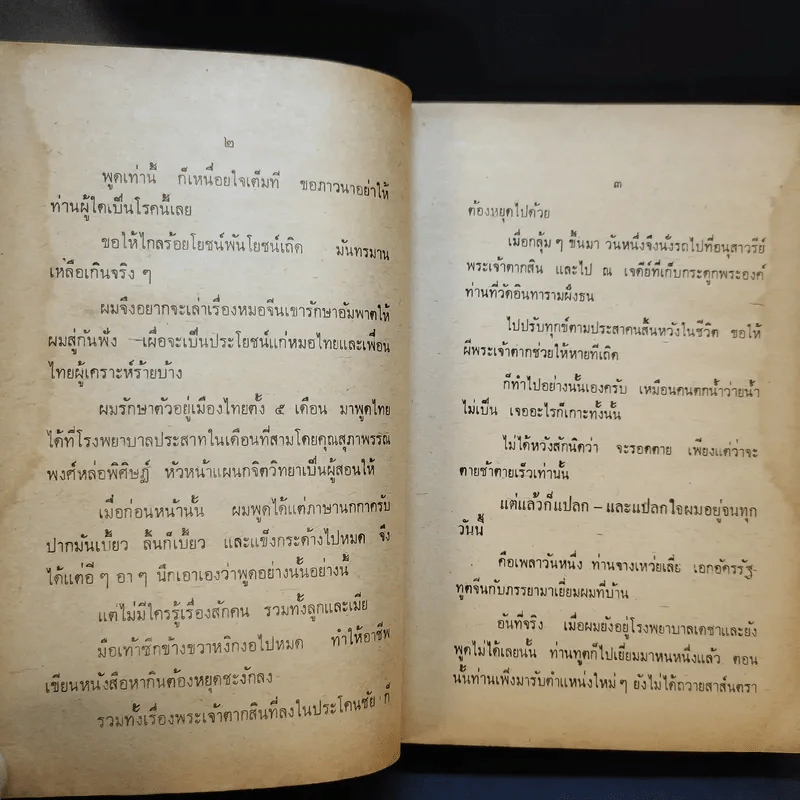 ๒
พูดเท่านี้ ก็เหนื่อยใจเต็มที ขอภาวนาอย่าให้
ท่านผู้ใดเป็นโรคนี้เลย
ขอให้ไกลร้อยโยชน์พันโยชน์เถิด มันทรมาน
เหลือเกินจริง ๆ
ผมจึงอยากจะเล่าเรื่องหมอจีนเขารักษาอัมพาตให้
ผมสู่กันฟัง —เผื่อจะเป็นประโยชน์แก่หมอไทยและเพื่อน
ไทยผู้เคราะห์ร้ายบ้าง
ผมรักษาตัวอยู่เมืองไทยตั้ง ๕ เดือน มาพูดไทย
ได้ที่โรงพยาบาลประสาทในเดือนที่สามโดยคุณสุภาพรรณ
พงศ์หล่อพิศิษฏ์ หัวหน้าแผนกจิตวิทยาเป็นผู้สอนให้
เมื่อก่อนหน้านั้น ผมพูดได้แต่ภาษานกกาครับ
ปากมันเบี้ยว ลิ้นก็เบี้ยว และแข็งกระด้างไปหมด จึง
ได้แต่อี ๆ อา ๆ นึกเอาเองว่าพูดอย่างนั้นอย่างนี้
แต่ไม่มีใครรู้เรื่องสักคน รวมทั้งลูกและเมีย
มือเท้าซีกข้างขวาหงิกงอไปหมด ทำให้อาชีพ
เขียนหนังสือหากินต้องหยุดชะงักลง
รวมทั้งเรื่องพระเจ้าตากสินที่ลงในประโคนชัย ก็
๓
ต้องหยุดไปด้วย
เมื่อกลุ้ม ๆ ขึ้นมา วันหนึ่งจึงนั่งรถไปที่อนุสาวรีย์
พระเจ้าตากสิน และไป ณ เจดีย์ที่เก็บกระดูกพระองค์
ท่านที่วัดอินทารามฝั่งธน
ไปปรับทุกข์ตามประสาคนสิ้นหวังในชีวิต ขอให้
ผีพระเจ้าตากช่วยให้หายทีเถิด
ก็ทำไปอย่างนั้นเองครับ เหมือนคนตกน้ำว่ายน้ำ
ไม่เป็น เจออะไรก็เกาะทั้งนั้น
ไม่ได้หวังสักนิดว่า จะรอดตาย เพียงแต่ว่าจะ
ตายช้าตายเร็วเท่านั้น
แต่แล้วก็แปลก – และแปลกใจผมอยู่จนทุก
วันนี้
คือเพลาวันหนึ่ง ท่านจางเหว่ยเลี่ย เอกอัครรัฐ-
ทูตจีนกับภรรยามาเยี่ยมผมที่บ้าน
อันที่จริง เมื่อผมยังอยู่โรงพยาบาลเดชาและยัง
พูดไม่ได้เลยนั้น ท่านทูตก็ไปเยี่ยมมาหนหนึ่งแล้ว ตอน
นั้นท่านเพิ่งมารับตำแหน่งใหม่ ๆ ยังไม่ได้ถวายสาส์นตรา